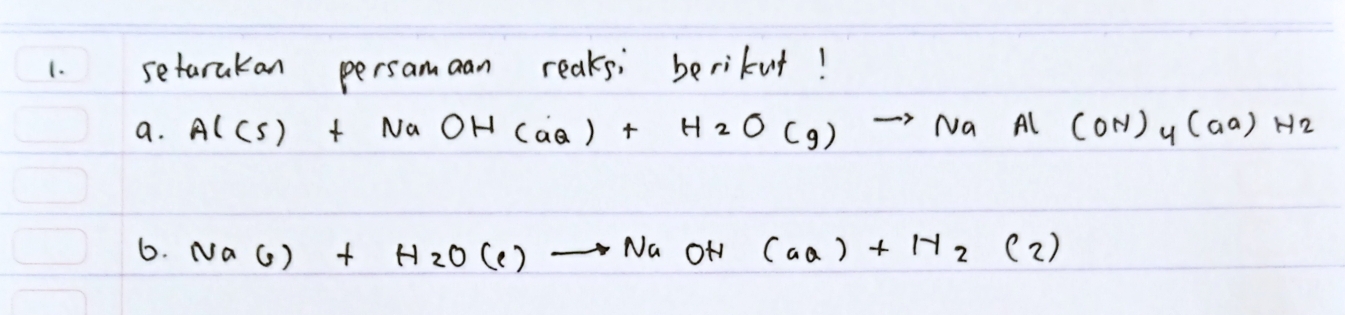 1. setarakan persamaan reaksi berikut !
a. Al (s) + Na OH (aq) + H2O (g) → Na Al (OH)4 (aq) H2
b. Na (s) + H2O (l) → Na OH (aq) + H2 (2)